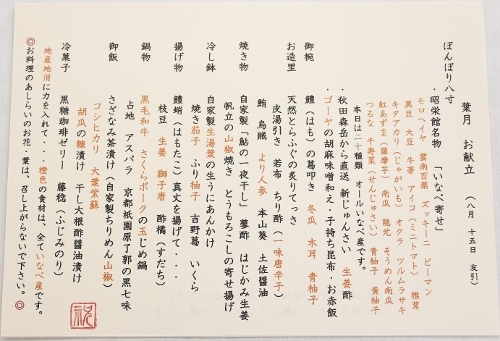 葉月　お献立　（八月　十五日　友引）
ぼんぼり八寸
・昭栄館名物　「いなべ寄せ」
モロヘイヤ　雲南百薬　ズッキーニ　ピーマン
黒豆　大豆　牛蒡　アイコ（ミニトマト）　椎茸
キタアカリ（じゃがいも）　オクラ　ツルムラサキ
紅あずま（薩摩芋）　南瓜　隠元　そうめん南瓜
つるな　千寿菜（せんじゅさい）　青柚子　黄柚子
本日は二十種類　オールいなべ産です。
・秋田森岳から直送　新じゅんさい　生姜酢
・ゴーヤの胡麻味噌和え・子持ち昆布・お赤飯
御椀　鱧（はも）の葛叩き　冬瓜　木耳　青柚子
お造里　天然とらふぐの炙りてっさ
皮湯引き　若布　ちり酢（一味唐辛子）
鮪　烏賊　より人参　本山葵　土佐醤油
焼き物　自家製「鮎の一夜干し」　蓼酢　はじかみ生姜
帆立の山椒焼き　とうもろこしの寄せ揚げ
冷し鉢　自家製生湯葉の生うにあんかけ
焼き茄子　ふり柚子　吉野葛　いくら
揚げ物　鱧蛸（はもたこ）真丈を揚げて・・・
枝豆　生姜　獅子唐　酢橘（すだち）
鍋物　黒毛和牛　さくらポークの玉じめ鍋
占地　アスパラ　京都祇園原了郭の黒七味
御飯　さざなみ茶漬け（自家製ちりめん山椒）
コシヒカリ　大葉紫蘇
胡瓜の糠漬け　干し大根酢醤油漬け
冷菓子　黒糖珈琲ゼリー　藤稔（ふじみのり）
地産地消に力を入れて・・・橙色の食材は、全ていなべ産です。
◎お料理のあしらいのお花・葉は、召し上がらないで下さい。◎
祝